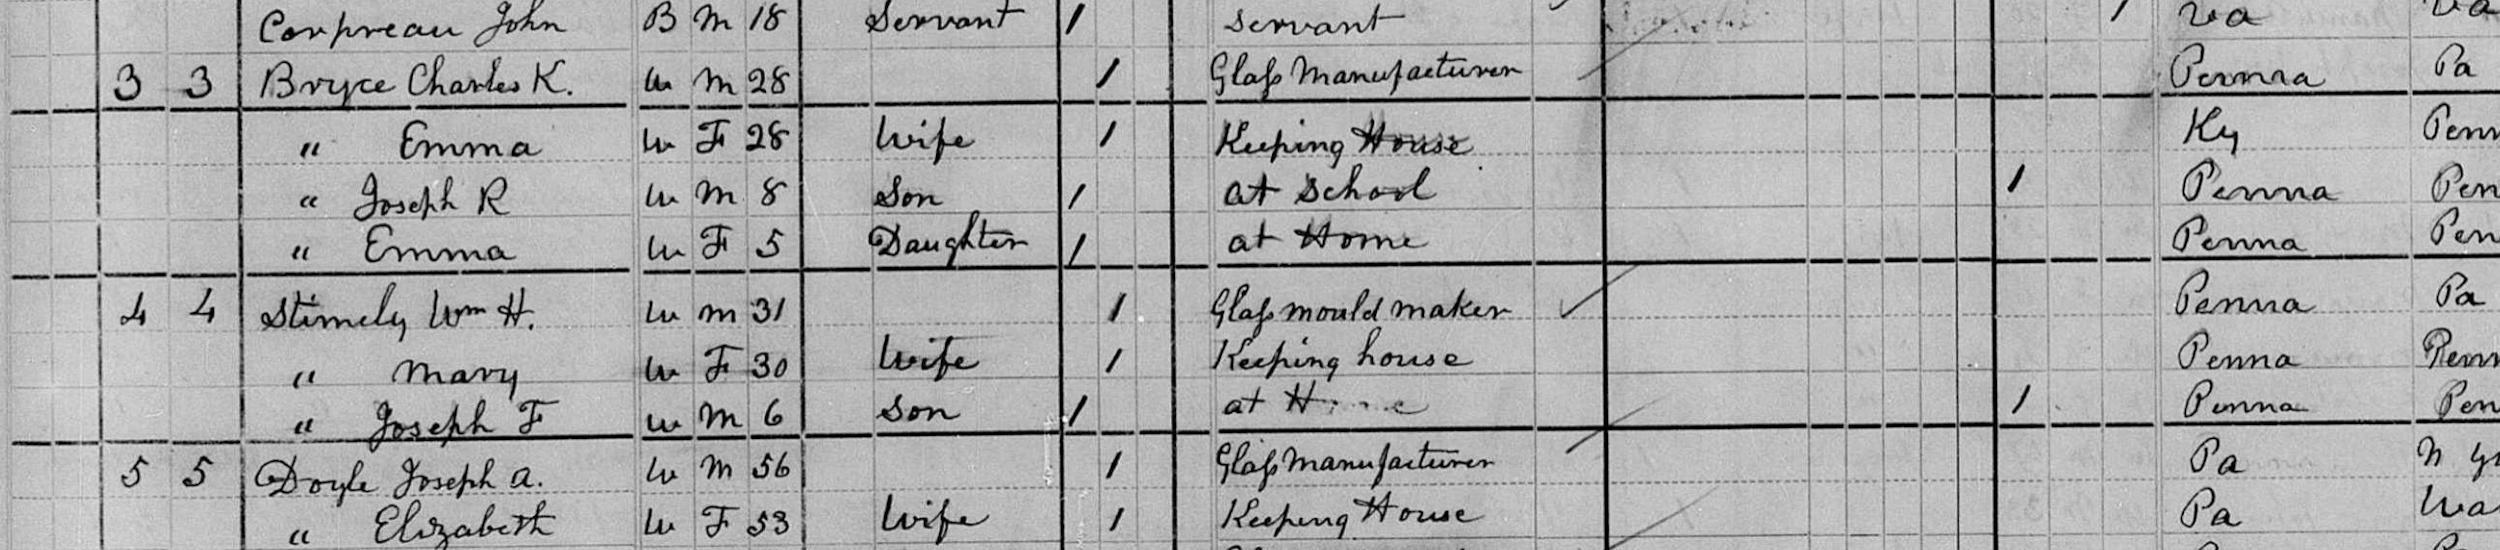 Corpreau John B M 18 Servant / Servant / Va Va
3 3 Bryce Charles K. W M 28 / Glass Manufacturer Penna Pa
" Emma W F 28 Wife / Keeping House Ky Penn
" Joseph R W M 8 Son / at School / Penna Pen
" Emma W F 5 Daughter / at Home Penna Pen
4 4 Stimely Wm H. W M 31 / Glass mould maker Penna Pa
" Mary W F 30 Wife / Keeping house Penna Penn
" Joseph F W M 6 Son / at / Penna Pen
5 5 Doyle Joseph A. W M 56 / Glass Manufacturer Pa
" Elizabeth W F 53 Wife / Keeping House Pa